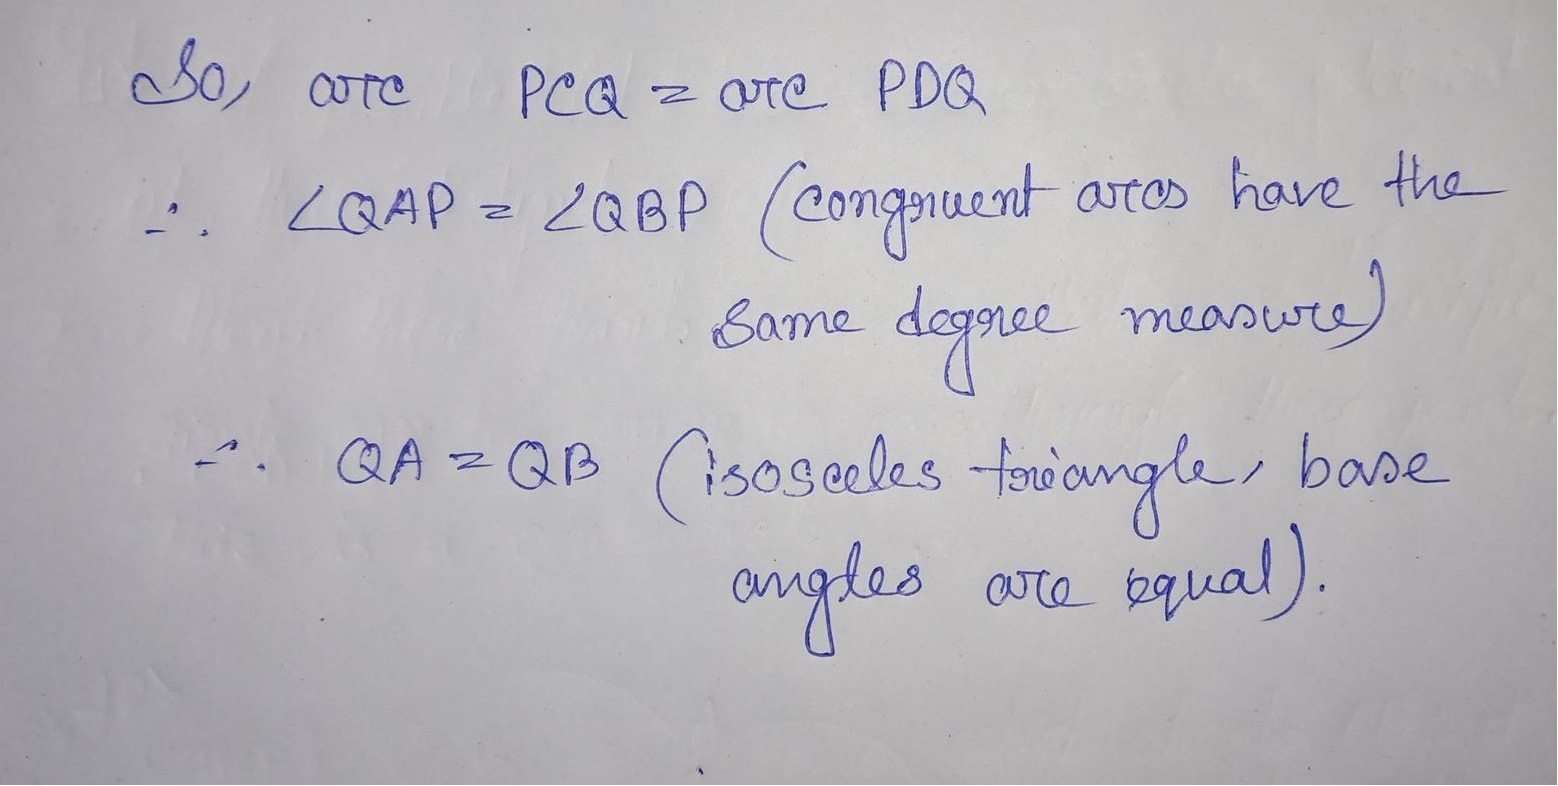 So, arc PCQ = arc PDQ
∴ ∠QAP = ∠QBP (congruent arcs have the
same degree measure)
∴ QA = QB (isosceles triangle, base
angles are equal).